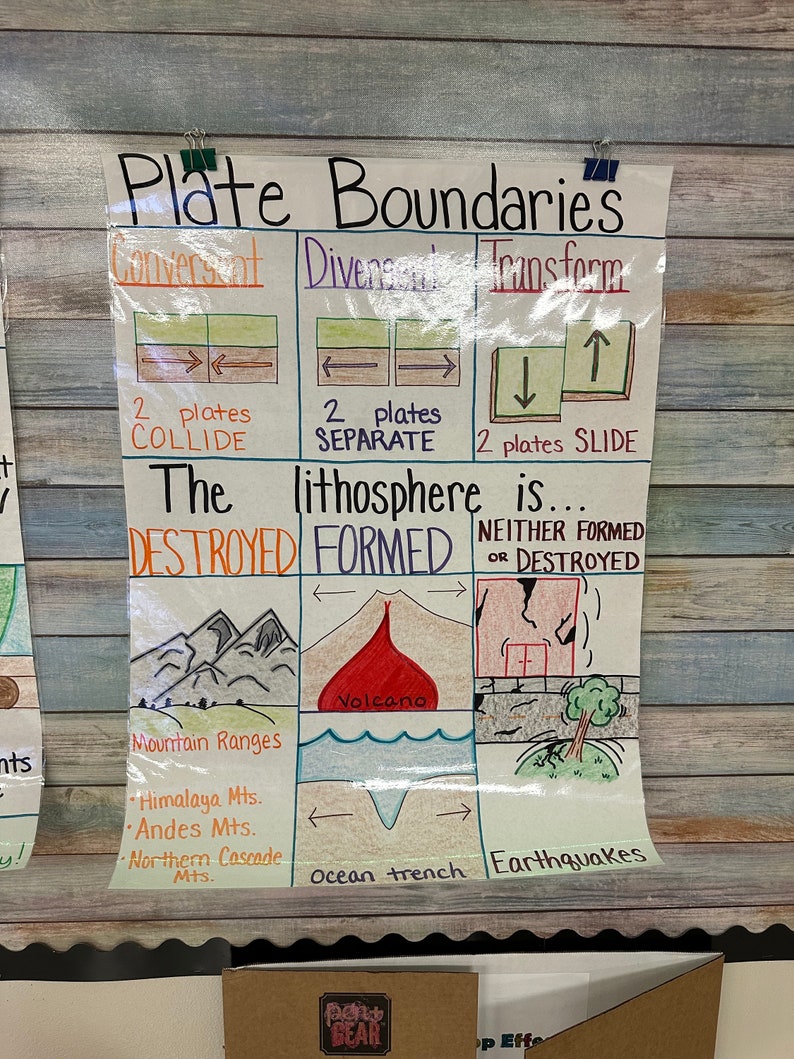 Plate Boundaries
Convergent
Divergent
Transform
2 plates
COLLIDE
2 plates
SEPARATE
2 plates SLIDE
The lithosphere is...
DESTROYED
FORMED
NEITHER FORMED
OR DESTROYED
Mountain Ranges
• Himalaya Mts.
• Andes Mts.
• Northern Cascade
Mts.
Volcano
Ocean trench
Earthquakes
nts
y!
pen+
GEAR
op Effe